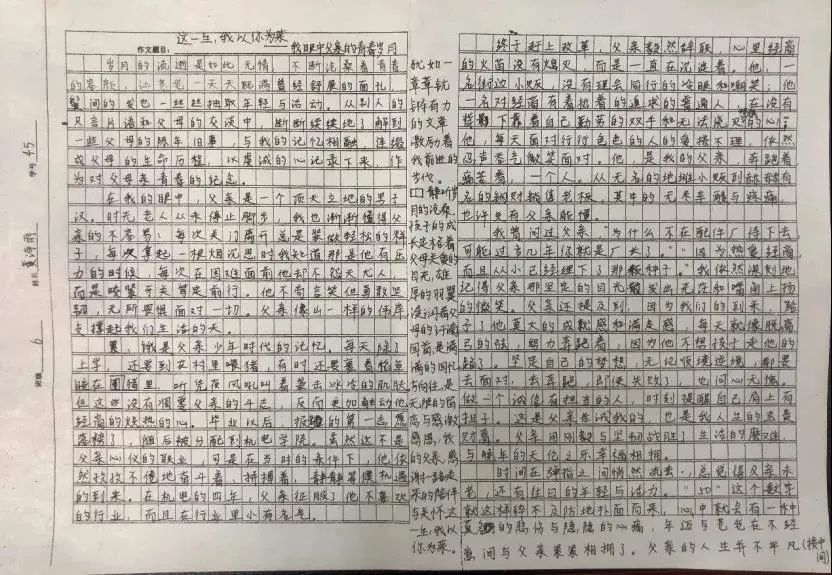 这一生，我以你为荣
作文题目：——我眼中父亲的青春岁月
岁月的流逝是如此无情，不断沧桑着青春
的容颜，让苍老一天天爬满曾经舒展的面孔，
鬓间的发也一丝丝抽取年轻与活动。从别人的
只言片语和父母的交谈中，断断续续地了解到
一些父母的陈年旧事，与我的记忆相融，连缀
成父母的生命历程，以虔诚的心记录下来，作
为对父母亲青春的纪念。
在我的眼中，父亲是一个顶天立地的男子
汉。时光老人从未停止脚步，我也渐渐懂得父
亲的不容易：每次关门离开总是装做轻松的样
子，每次拿起一根烟沉思时我知道那是他有出
力的时候，每次在困难面前他却不怨天尤人，
而是咬紧牙关笃定前行。他不苟言笑但勇敢坚
韧，无所畏惧面对一切。父亲像山一样的伟岸
支撑起我们生活的天。
累、饿是父亲少年时代的记忆。每天除了
上学，还要到在村里喂猪，有时还要裹着稻草
睡在圈猪里，听凭夜风吼叫着袭击冰冷的肌肤
但这些没有凋零父亲的斗志，反而更加融动他
经商的炽热的心。毕业以后，报的第一志愿
落榜了，随后被分配到机电学院。虽然这不是
父亲心仪的职业，可是在当时的条件下，他依
然孜孜不倦地奋斗着、拼搏着，静静等候机遇
的到来。在机电的四年，父亲征服了他不喜欢
的行业，而且在行业里小有名气。
终于赶上改革，父亲毅然辞职，心里经商
的火苗没有熄灭，而是一直在沉淀着。他，一
名街边小贩，没有理会同行的冷眼和嘲笑；他
一名对经商有着执着的追求的普通人，在没有
下靠着自己勤劳的双手和无法浇灭的心；
他，每天面对行行色色的人的爱搭不理，依然
沉声吞气微笑面对。他，是我的父亲，在跑着
痛苦着，一个人。从无名的地摊小贩到赫赫有
名的钢材销售老板，其中的无尽辛酸与疼痛，
也许只有父亲能懂。
我曾问过父亲，“为什么不在配件厂待下去
可能过多几年你就是厂长了。”“因为热爱经商，
而且从小已经埋下了那颗种子。”我依然深刻地
记得父亲那坚定的目光散发出光芒和嘴角上扬
的微笑。父亲还提及到，因为我们的到来，给
予了他莫大的成就感和满足感，每天就像脱离
弓的弦，努力奔跑着，因为他不想孩子走他的
路了。坚定自己的梦想，无论顺境逆境，都要
去面对，去奔跑，即使失败了，也问心无愧。
做一个诚信有担当的人，时刻提醒自己肩上有
担子。这是父亲告诫我的，也是我人生的宝贵
财富。父亲用刚毅与坚韧战胜了生活的魔难，
与晚年的天伦之乐幸福相拥。
时间在弹指之间悄然流去，总觉得父亲未
老，还有往日的年轻与活力。“50”这个数字
就这样猝不及防地扑面而来，心中就会有一种
莫名的悲伤与隐隐的心痛，年迈与苍老在不经
意间与父亲累累相拥了。父亲的人生并不平凡（接中间）
犹如一
章章铿
锵有力
的文章
激励着
我前进的
步伐。
静听岁
月的流淌，
孩子的成
长定格着
父母关爱的
目光，雄
厚的羽翼
浸润着父
母的汗滴
回首，是满
满的回忆
与向往，是
无限的留
恋与感激
感恩，我
的父亲，感
谢一路走
来的陪伴
与关怀，这
一生，我以
你为荣。
学号 45
姓名 黄诗雨
班级 6